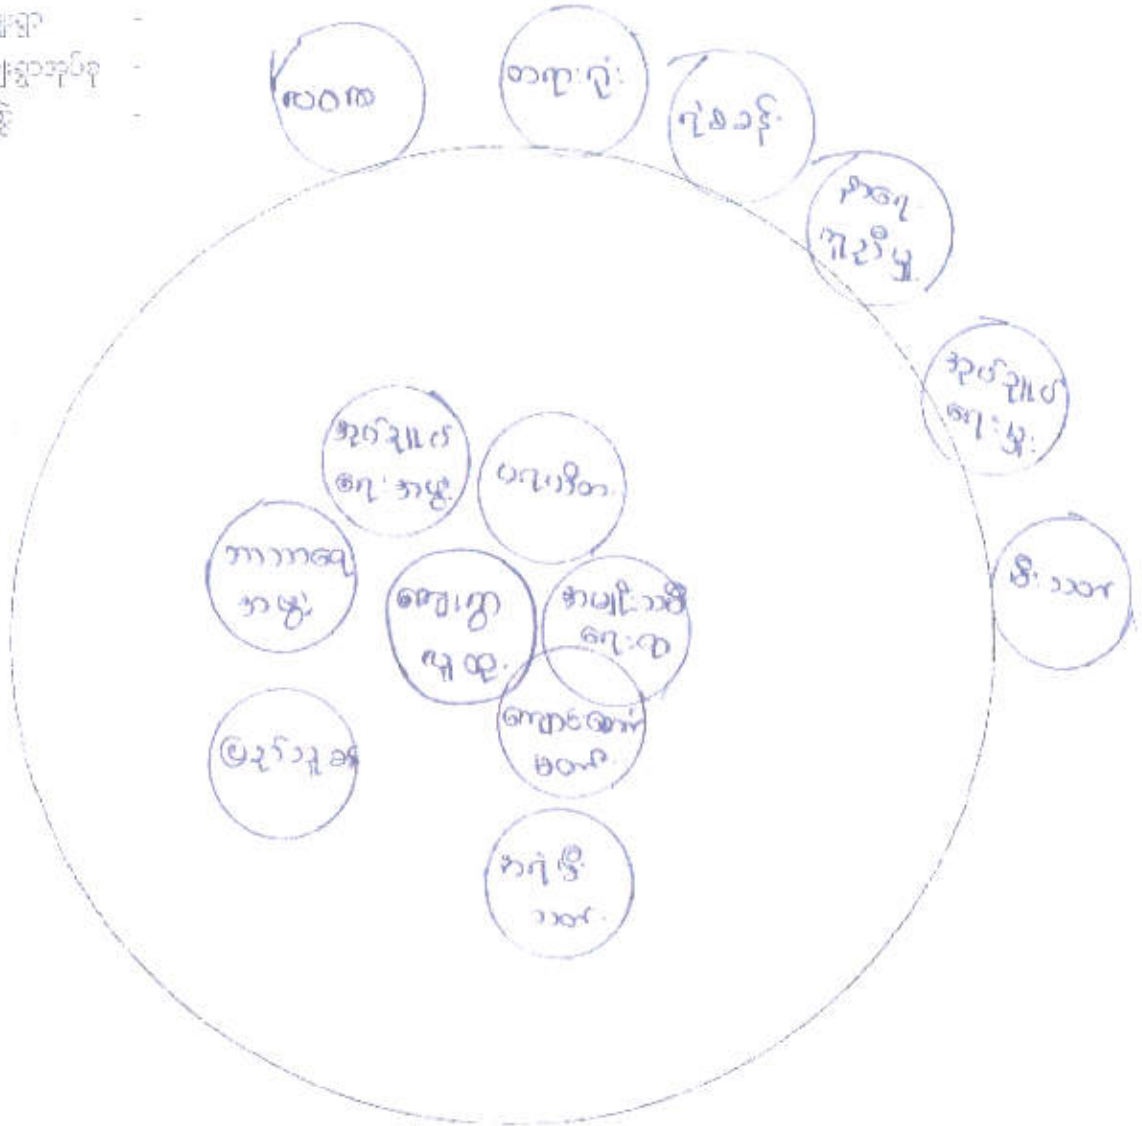 ကျေးရွာ -
ကျေးရွာအုပ်စု -
-
လဝက
တရားရုံး
ရဲစခန်း
နာရေး
ကူညီမှု
အုပ်ချုပ်
ရေးမှူး
မီးသတ်
အုပ်ချုပ်
ရေးအဖွဲ့
ပရဟိတ
ဘာသာရေး
အဖွဲ့
ကျေးရွာ
လူထု
အမျိုးသမီး
ရေးရာ
ကျောင်းကော်
မတီ
ပြည်သူ့စစ်
အရံမီး
သတ်